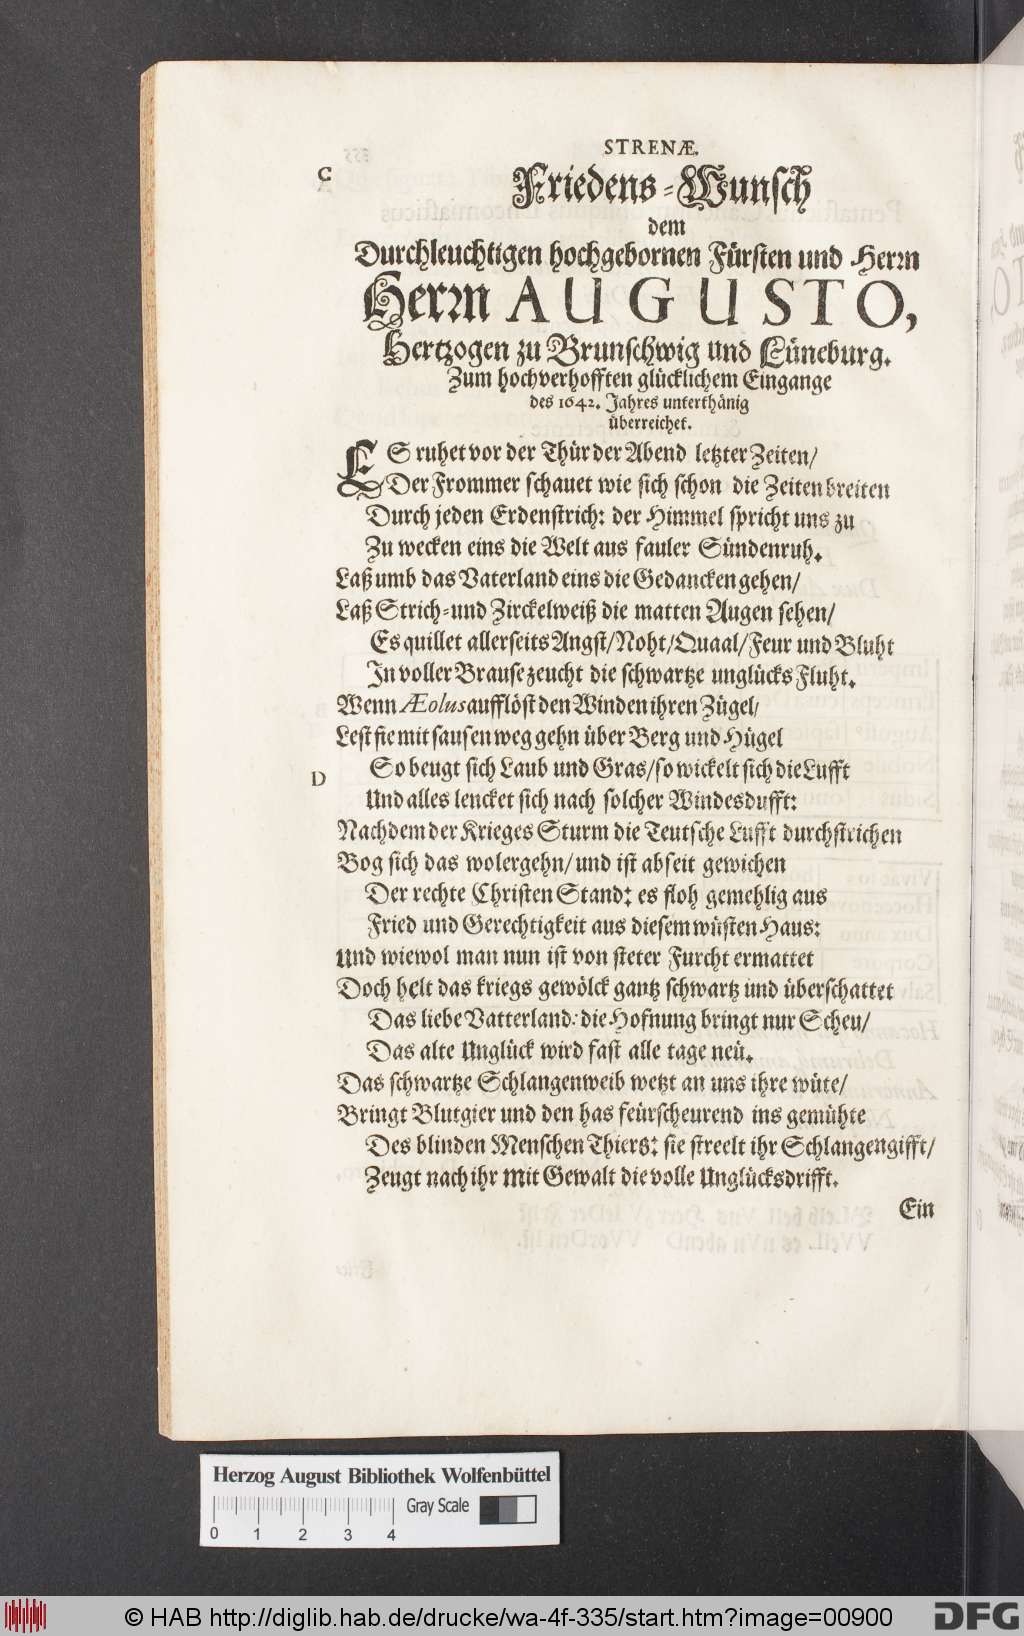 STRENÆ.
C
Friedens-Wunsch
dem
Durchleuchtigen hochgebornen Fürsten und Herrn
Herrn AUGUSTO,
Hertzogen zu Brunschwig und Lüneburg.
Zum hochverhofften glücklichem Eingange
des 1642. Jahres unterthänig
überreichet.
ES ruhet vor der Thür der Abend letzter Zeiten/
Der Frommer schauet wie sich schon die Zeiten breiten
Durch jeden Erdenstrich: der Himmel spricht uns zu
Zu wecken eins die Welt aus fauler Sündenruh.
Laß umb das Vaterland eins die Gedancken gehen/
Laß Strich-und Zirckelweiß die matten Augen sehen/
Es quillet allerseits Angst/Noht/Quaal/Feur und Bluht
In voller Brause zeucht die schwartze unglücks Fluht.
Wenn Æolus aufflöst den Winden ihren Zügel/
Lest sie mit sausen weg gehn über Berg und Hügel
D
So beugt sich Laub und Gras/so wickelt sich die Lufft
Und alles lencket sich nach solcher Windesdufft:
Nachdem der Krieges Sturm die Teutsche Lufft durchstrichen
Bog sich das wolergehn/und ist abseit gewichen
Der rechte Christen Stand: es floh gemehlig aus
Fried und Gerechtigkeit aus diesem wüsten Haus:
Und wiewol man nun ist von steter Furcht ermattet
Doch helt das kriegs gewölck gantz schwartz und überschattet
Das liebe Vatterland: die Hofnung bringt nur Scheu/
Das alte Unglück wird fast alle tage neü.
Das schwartze Schlangenweib wetzt an uns ihre wüte/
Bringt Blutgier und den has feürscheurend ins gemühte
Des blinden Menschen Thiers: sie streelt ihr Schlangengifft/
Zeugt nach ihr mit Gewalt die volle Unglücksdrifft.
Ein
Herzog August Bibliothek Wolfenbüttel
Gray Scale
0 1 2 3 4
© HAB http://diglib.hab.de/drucke/wa-4f-335/start.htm?image=00900
DFG